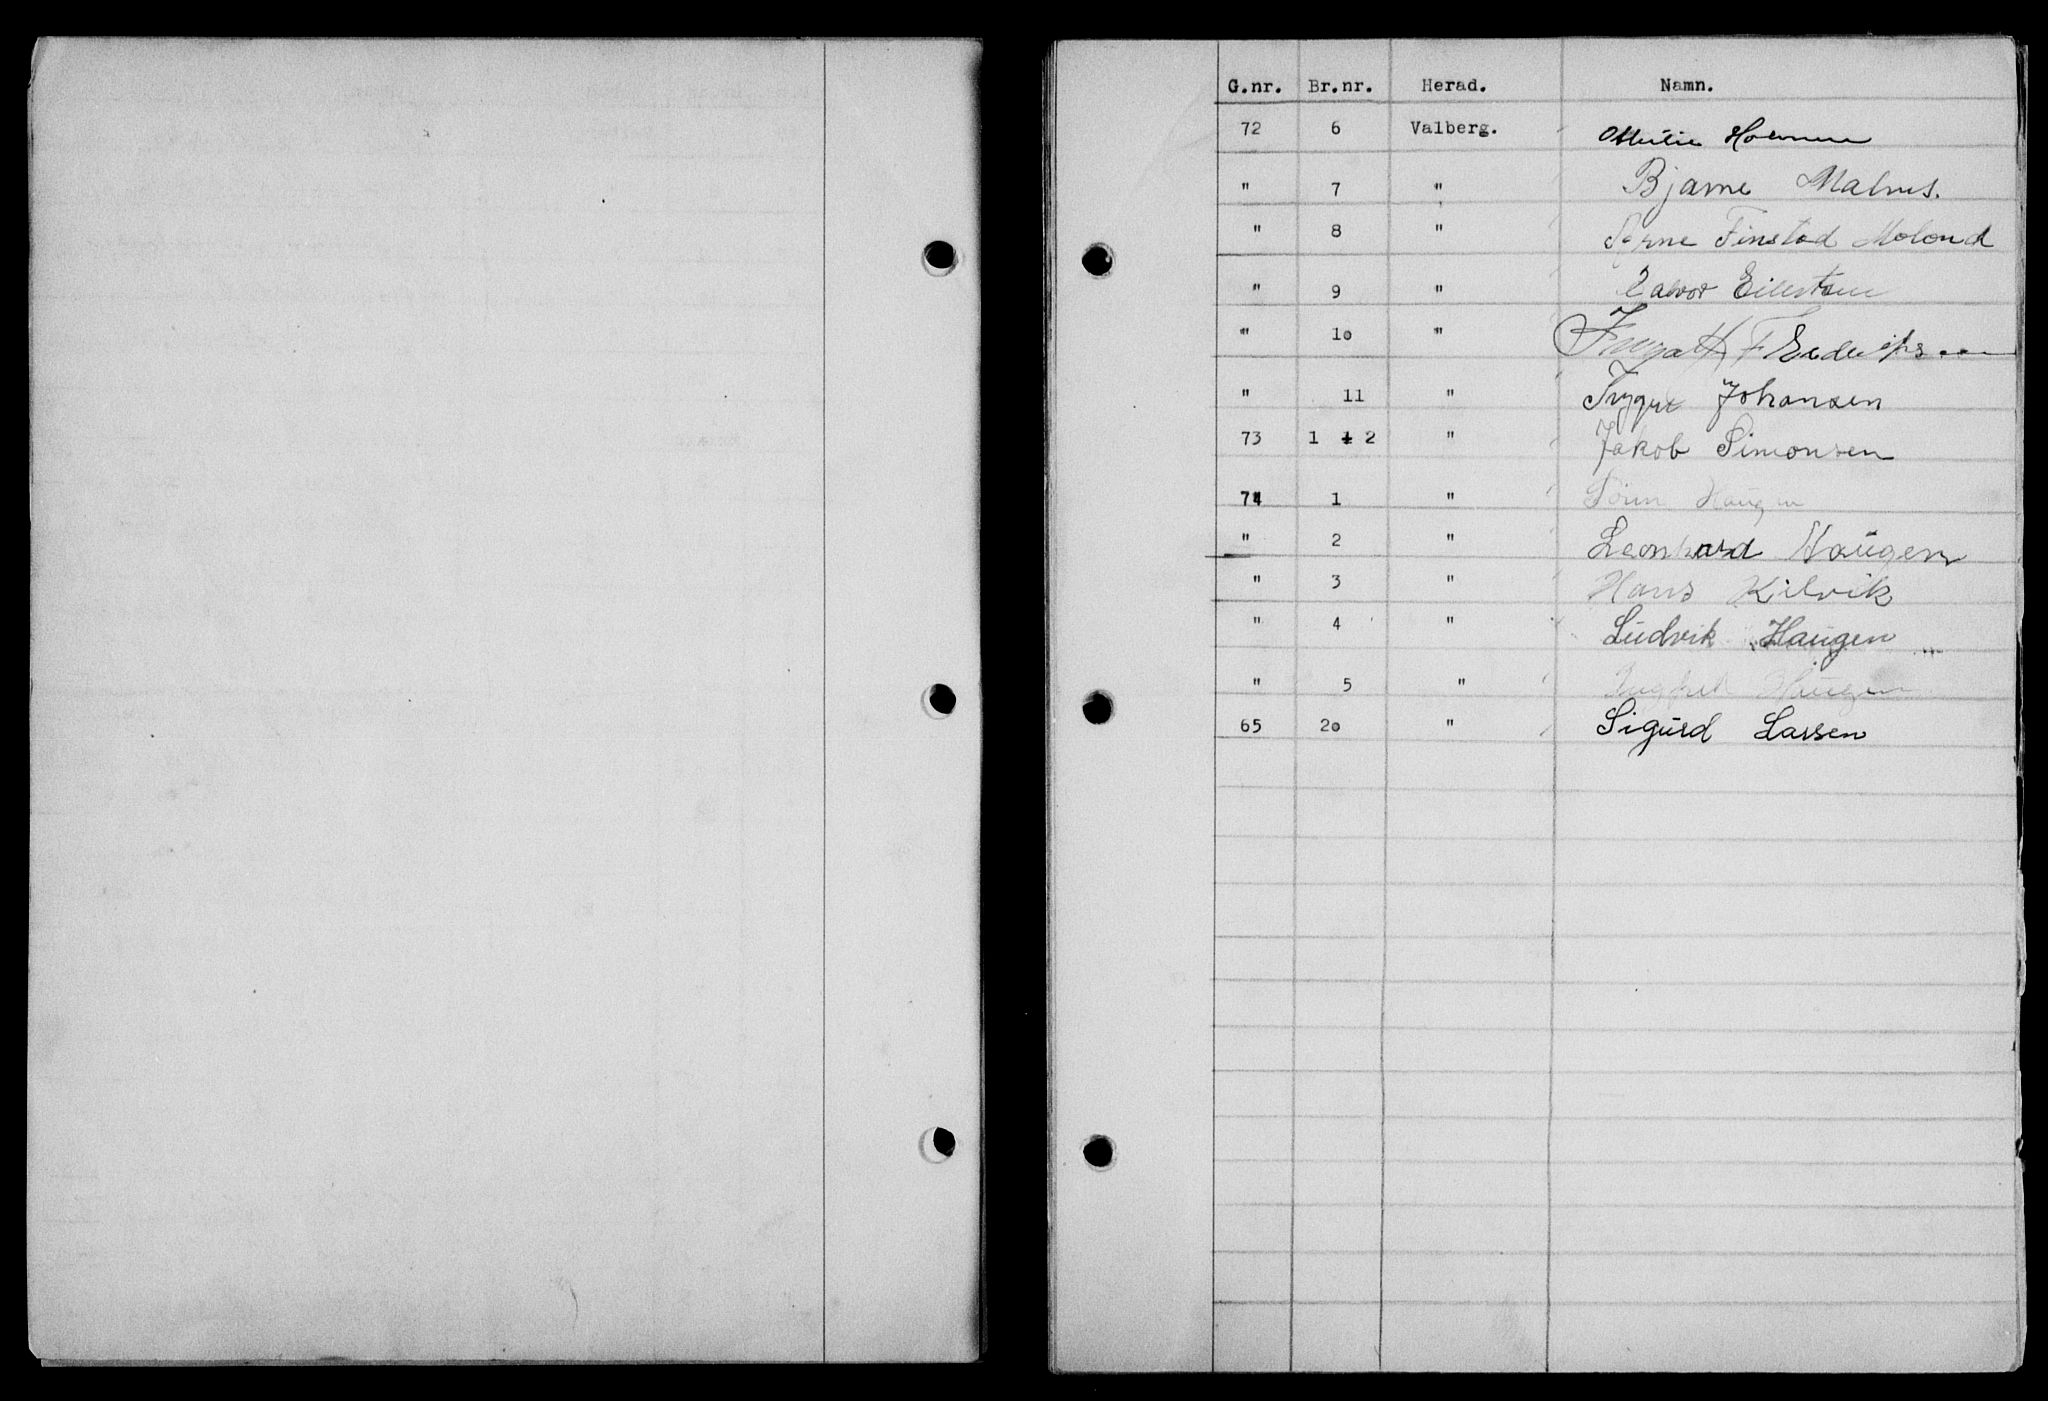 G.nr. Br.nr. Herad. Namn.
72 6 Valberg.
" 7 " Bjarne Malnes.
" 8 " Finstad Moland
" 9 "
" 10 "
" 11 " Johansen
73 1 + 2 " Jakob Simonsen
74 1 " Haugen
" 2 " Leonhard Haugen
" 3 " Hans Kilvik
" 4 " Ludvik Haugen
" 5 " Haugen
65 20 " Sigurd Larsen